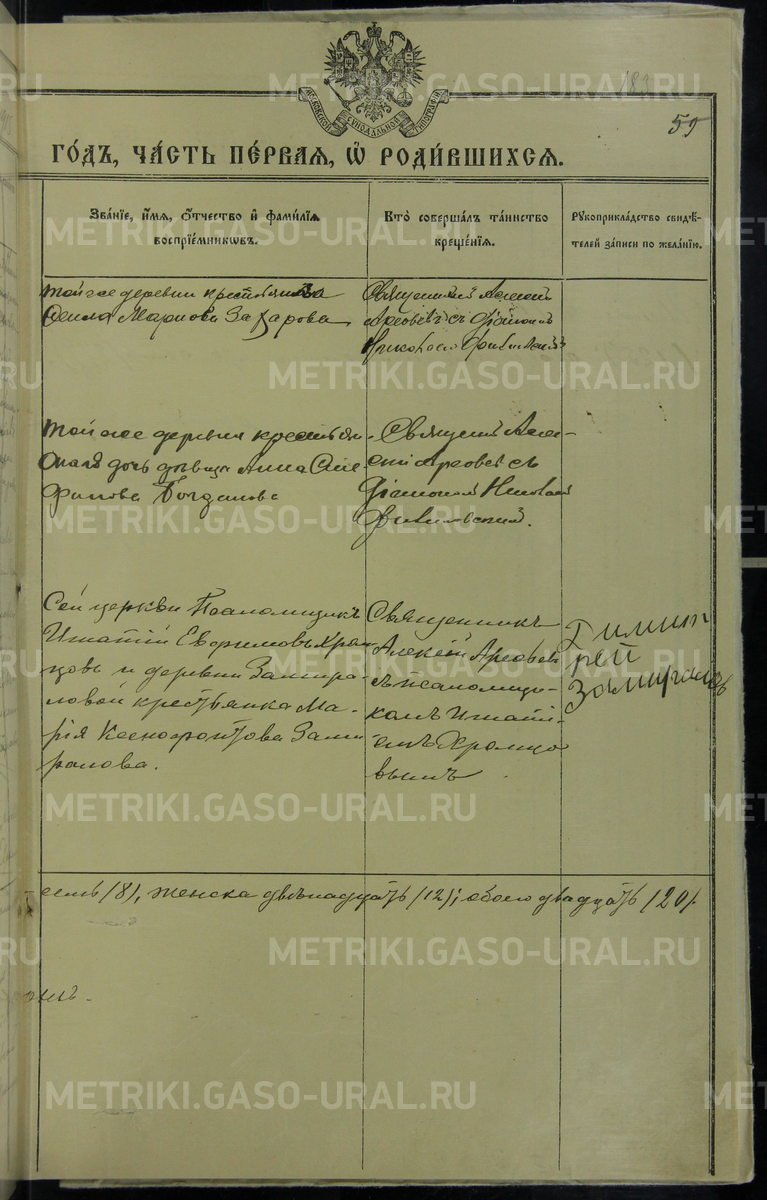 183
59
МОСКОВСКОЙ СѴНОДАЛЬНОЙ ТИПОГРАФІИ
ГО́ДЪ, ЧА́СТЬ ПЕ́РВАЯ, Ѡ҆ РОДИ́ВШИХСЯ.
Зва́нїе, и҆́мя, ѻ҆́тчество и҆ фами́лїя
воспрїе́мникѡвъ.
Кто̀ соверша́лъ та́инство
креще́нїя.
Рꙋкоприкла́дство свидѣ́-
телей за́писи по жела́нїю.
той же деревни крестьянка
Маркова Захарова
Священникъ Алексѣй
Арефьевъ съ Діакономъ
Николаемъ
той же деревни крестьян-
дочь дѣвица Анна
Богданова
Священникъ Алек-
сѣй Арефьевъ съ
Діакономъ Николаемъ
Сей церкви Псаломщикъ
Игнатій Евфимовъ Храм-
цовъ и деревни Замира-
ловой крестьянка Ма-
рія Ксенофонтова Зами-
ралова.
Священникъ
Алексѣй Арефьевъ
съ псаломщи-
комъ Игнаті-
емъ Храмцо-
вымъ
Замираловъ
семь (8), женска двѣнадцать (12); обоего двадцать (20).
METRIKI.GASO-URAL.RU